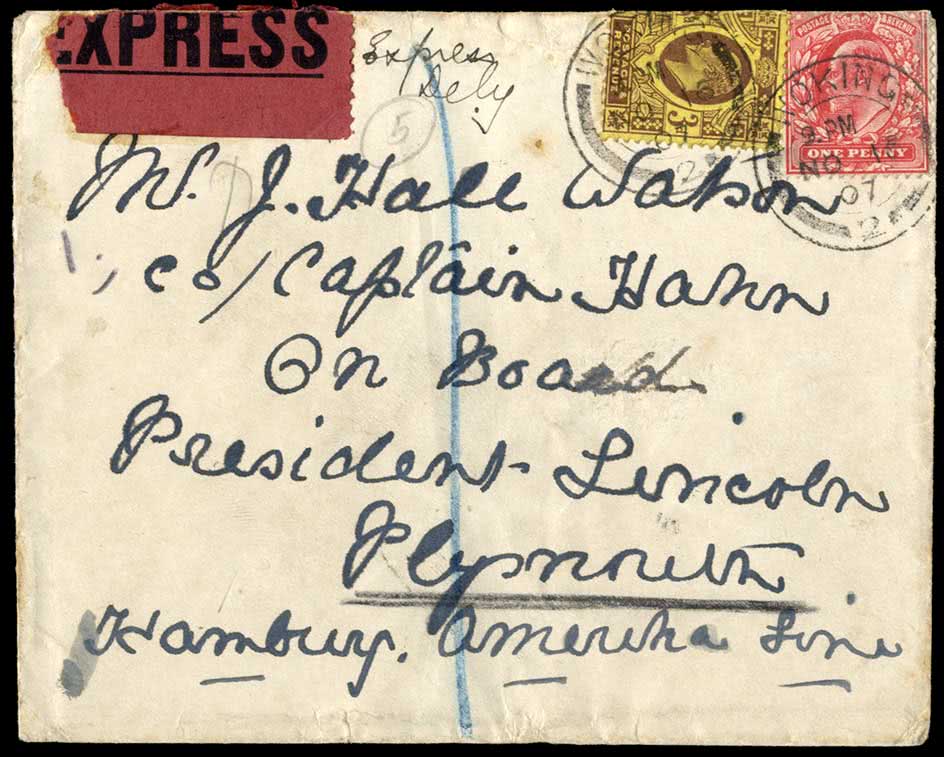 EXPRESS
Express
Dely
5
POSTAGE & REVENUE
3d
POSTAGE & REVENUE
ONE PENNY
WOKING
9. PM
NO 15
07
2
Mr. J. Hall Watson
co/Captain Hahn
On Board
President Lincoln
Plymouth
Hamburg. Amerika Line